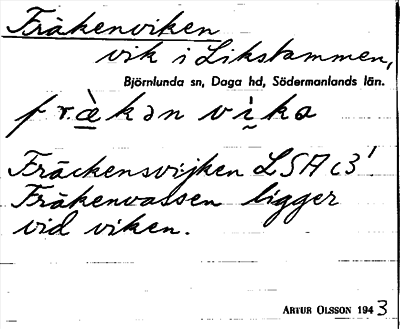 Fräkenviken
vik i Likstammen,
Björnlunda sn, Daga hd, Södermanlands län.
fræ̀kən vi̱ka
Fräckensvijken LSA c3¹.
Fräkenvassen ligger
vid viken.
ARTUR OLSSON 1943